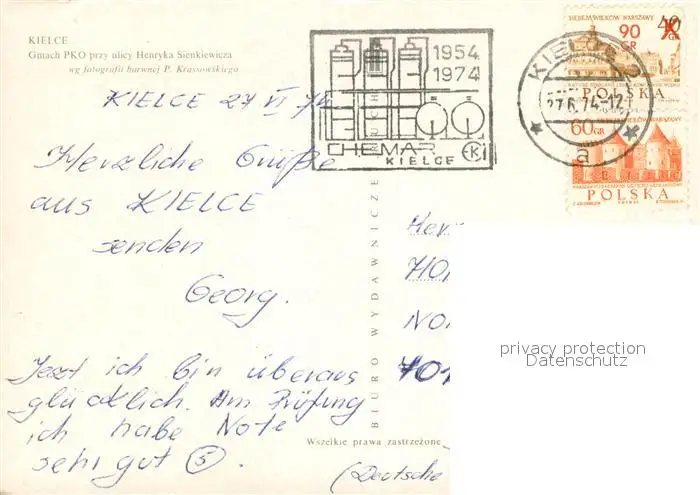 KIELCE
Gmach PKO przy ulicy Henryka Sienkiewicza
wg fotografii barwnej P. Krassowskiego
KIELCE 27 VI 74
Herzliche Grüße
aus KIELCE
senden
Georg.
Jetzt ich bin überaus
glücklich. Am Prüfung
ich habe Note
sehr gut (5).
(Deutsche
1954
1974
CHEMAR
KIELCE
KIELCE 2
27.6.74-12
a
SIEDEM WIEKÓW WARSZAWY
40
90
GR
POLSKA
SIEDEM WIEKÓW WARSZAWY
60 GR
POLSKA
BIURO WYDAWNICZE RUCH
Wszelkie prawa zastrzeżone
privacy protection
Datenschutz